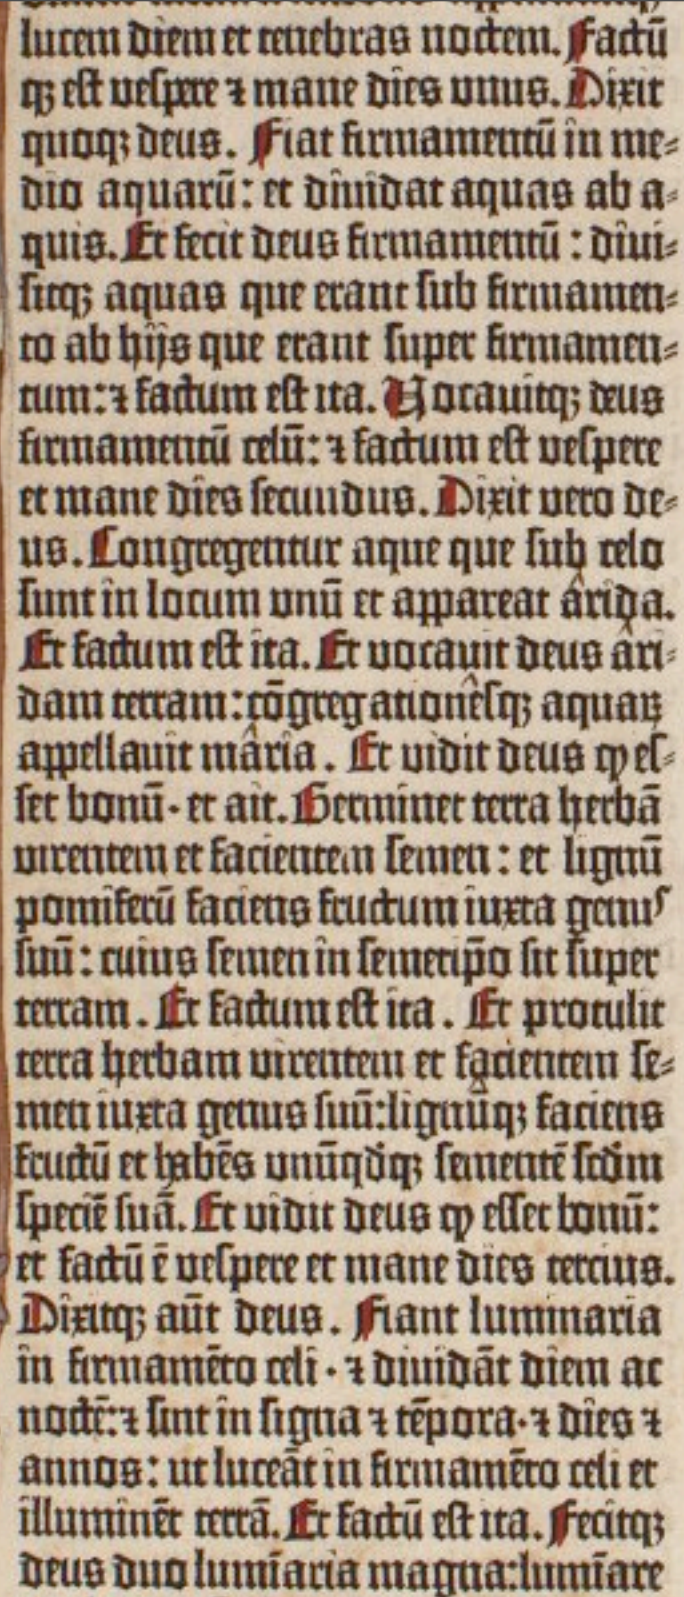 lucem diem et tenebras noctem. Factū
qꝫ est vespere ⁊ mane dies vnus. Dixit
quoqꝫ deus. Fiat firmamentū in me⸗
dio aquarū: et diuidat aquas ab a⸗
quis. Et fecit deus firmamentū: diui⸗
sitqꝫ aquas que erant sub firmamen⸗
to ab hijs que erant super firmamen⸗
tum: ⁊ factum est ita. Vocauitqꝫ deus
firmamentū celū: ⁊ factum est vespere
et mane dies secundus. Dixit vero de⸗
us. Congregentur aque que sub celo
sunt in locum vnū et appareat arida.
Et factum est ita. Et vocauit deus ari⸗
dam terram: cōgregationesqꝫ aquaꝝ
appellauit maria. Et vidit deus ꝙ es⸗
set bonū· et ait. Germinet terra herbā
virentem et facientem semen: et lignū
pomiferū faciens fructum iuxta genus
suū: cuius semen in semetip̄o sit super
terram. Et factum est ita. Et protulit
terra herbam virentem et facientem se⸗
men iuxta genus suū: lignūqꝫ faciens
fructū et habēs vnūqd̄qꝫ sementē scd̄m
speciē suā. Et vidit deus ꝙ esset bonū:
et factū ē vespere et mane dies tercius.
Dixitqꝫ aūt deus. Fiant luminaria
in firmamēto celi· ⁊ diuidāt diem ac
noctē: ⁊ sint in signa ⁊ tēpora· ⁊ dies ⁊
annos: ut luceāt in firmamēto celi et
illuminēt terrā. Et factū est ita. Fecitqꝫ
deus duo lumīaria magna: lumīare